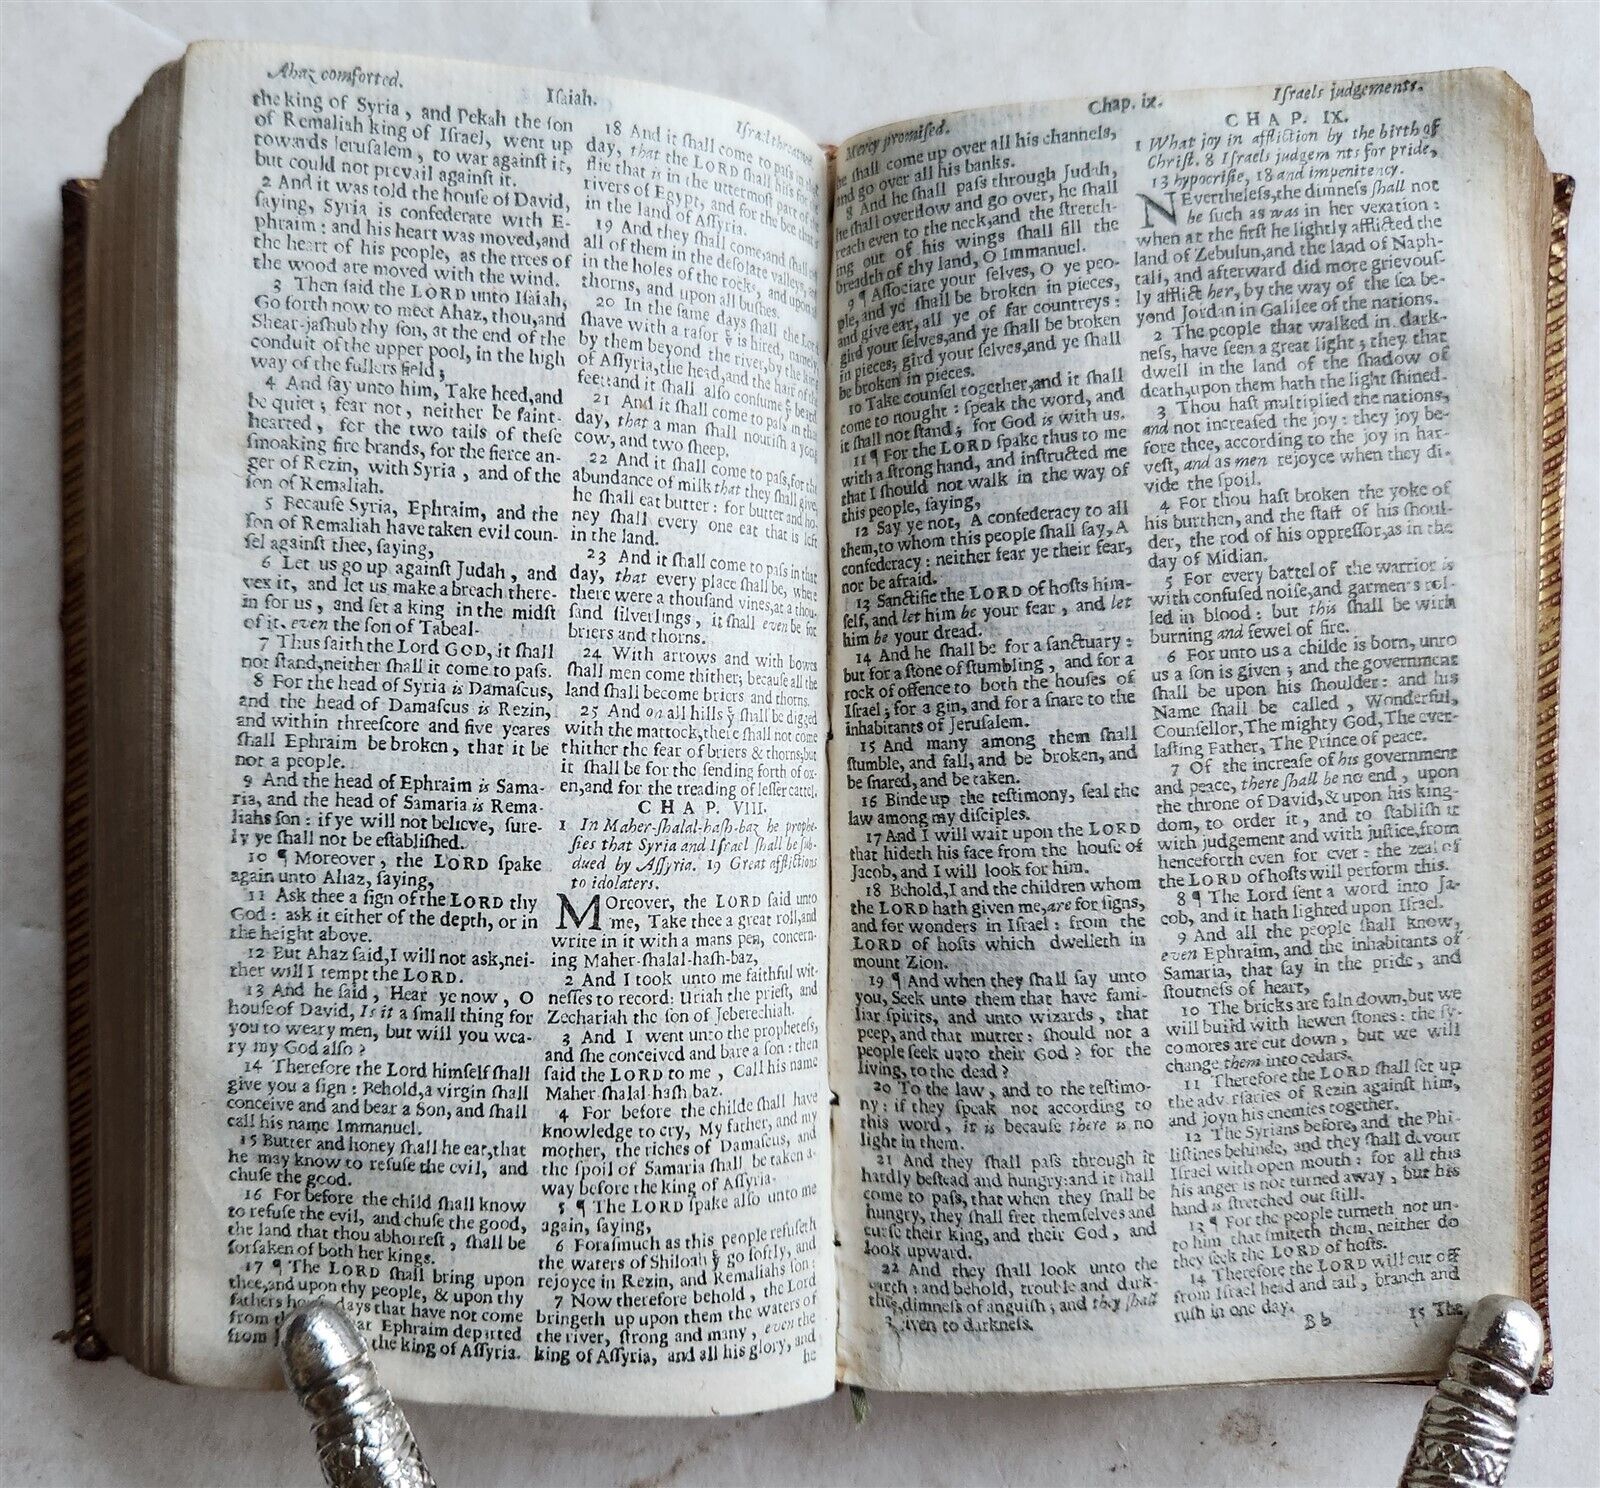 Ahaz comforted.
Iſaiah.
Iſrael
the king of Syria, and Pekah the ſon
of Remaliah king of Iſrael, went up
towards Jeruſalem, to war againſt it,
but could not prevail againſt it.
2 And it was told the houſe of David,
ſaying, Syria is confederate with E-
phraim: and his heart was moved,and
the heart of his people, as the trees of
the wood are moved with the wind.
3 Then ſaid the LORD unto Iſaiah,
Go forth now to meet Ahaz, thou,and
Shear-jaſhub thy ſon, at the end of the
conduit of the upper pool, in the high
way of the fullers field;
4 And ſay unto him, Take heed,and
be quiet; fear not, neither be faint-
hearted, for the two tails of theſe
ſmoaking fire brands, for the fierce an-
ger of Rezin, with Syria, and of the
ſon of Remaliah.
5 Becauſe Syria, Ephraim, and the
ſon of Remaliah have taken evil coun-
ſel againſt thee, ſaying,
6 Let us go up againſt Judah, and
vex it, and let us make a breach there-
in for us, and ſet a king in the midſt
of it, even the ſon of Tabeal.
7 Thus ſaith the Lord GOD, it ſhall
not ſtand,neither ſhall it come to paſs.
8 For the head of Syria is Damaſcus,
and the head of Damaſcus is Rezin,
and within threeſcore and five yeares
ſhall Ephraim be broken, that it be
not a people.
9 And the head of Ephraim is Sama-
ria, and the head of Samaria is Rema-
liahs ſon: if ye will not believe, ſure-
ly ye ſhall not be eſtabliſhed.
10 ¶ Moreover, the LORD ſpake
again unto Ahaz, ſaying,
11 Ask thee a ſign of the LORD thy
God: ask it either of the depth, or in
the height above.
12 But Ahaz ſaid,I will not ask,nei-
ther will I tempt the LORD.
13 And he ſaid, Hear ye now, O
houſe of David, Is it a ſmall thing for
you to weary men, but will you wea-
ry my God alſo?
14 Therefore the Lord himſelf ſhall
give you a ſign: Behold,a virgin ſhall
conceive and and bear a Son, and ſhall
call his name Immanuel.
15 Butter and honey ſhall he eat,that
he may know to refuſe the evil, and
chuſe the good.
16 For before the child ſhall know
to refuſe the evil, and chuſe the good,
the land that thou abhorreſt, ſhall be
forſaken of both her kings.
17 ¶ The LORD ſhall bring upon
thee,and upon thy people, & upon thy
fathers days that have not come
from Ephraim departed
from the king of Aſſyria.
18 And it ſhall come to paſs in
day, that the LORD ſhall hiſs for
flie that is in the uttermoſt part of
rivers of Egypt, and for the bee that
in the land of Aſſyria.
19 And they ſhall come,and ſhall
all of them in the deſolate valleys,
in the holes of the rocks, and upon
thorns, and upon all buſhes.
20 In the ſame days ſhall the Lord
ſhave with a raſor yͭ is hired, namely
by them beyond the river,by the king
of Aſſyria,the head,and the hair of the
feet:and it ſhall alſo conſume yͤ beard
21 And it ſhall come to paſs in that
day, that a man ſhall nouriſh a yong
cow, and two ſheep.
22 And it ſhall come to paſs,for the
abundance of milk that they ſhall give,
he ſhall eat butter: for butter and ho-
ney ſhall every one eat that is left
in the land.
23 And it ſhall come to paſs in that
day, that every place ſhall be, where
there were a thouſand vines,at a thou-
ſand ſilverlings, it ſhall even be for
briers and thorns.
24 With arrows and with bowes
ſhall men come thither; becauſe all the
land ſhall become briers and thorns.
25 And on all hills yͭ ſhall be digged
with the mattock,there ſhall not come
thither the fear of briers & thorns;but
it ſhall be for the ſending forth of ox-
en,and for the treading of leſſer cattel.
CHAP. VIII.
1 In Maher-ſhalal-haſh-baz he prophe-
ſies that Syria and Iſrael ſhall be ſub-
dued by Aſſyria. 19 Great afflictions
to idolaters.
Moreover, the LORD ſaid unto
me, Take thee a great roll,and
write in it with a mans pen, concern-
ing Maher-ſhalal-haſh-baz,
2 And I took unto me faithful wit-
neſſes to record: Uriah the prieſt, and
Zechariah the ſon of Jeberechiah.
3 And I went unto the propheteſs,
and ſhe conceived and bare a ſon: then
ſaid the LORD to me, Call his name
Maher-ſhalal-haſh baz.
4 For before the childe ſhall have
knowledge to cry, My father, and my
mother, the riches of Damaſcus, and
the ſpoil of Samaria ſhall be taken a-
way before the king of Aſſyria.
5 ¶ The LORD ſpake alſo unto me
again, ſaying,
6 Foraſmuch as this people refuſeth
the waters of Shiloah yͭ go ſoftly, and
rejoyce in Rezin, and Remaliahs ſon:
7 Now therefore behold, the Lord
bringeth up upon them the waters of
the river, ſtrong and many, even the
king of Aſſyria, and all his glory, and
he
Mercy promiſed.
Chap. ix.
Iſraels judgements.
he ſhall come up over all his channels,
and go over all his banks.
8 And he ſhall paſs through Judah,
he ſhall overflow and go over, he ſhall
reach even to the neck,and the ſtretch-
ing out of his wings ſhall fill the
breadth of thy land, O Immanuel.
9 ¶ Aſſociate your ſelves, O ye peo-
ple, and ye ſhall be broken in pieces,
and give ear, all ye of far countreys:
gird your ſelves,and ye ſhall be broken
in pieces; gird your ſelves,and ye ſhall
be broken in pieces.
10 Take counſel together,and it ſhall
come to nought: ſpeak the word, and
it ſhall not ſtand; for God is with us.
11 ¶ For the LORD ſpake thus to me
with a ſtrong hand, and inſtructed me
that I ſhould not walk in the way of
this people, ſaying,
12 Say ye not, A confederacy to all
them,to whom this people ſhall ſay, A
confederacy: neither fear ye their fear,
nor be afraid.
13 Sanctifie the LORD of hoſts him-
ſelf, and let him be your fear, and let
him be your dread.
14 And he ſhall be for a ſanctuary:
but for a ſtone of ſtumbling, and for a
rock of offence to both the houſes of
Iſrael; for a gin, and for a ſnare to the
inhabitants of Jeruſalem.
15 And many among them ſhall
ſtumble, and fall, and be broken, and
be ſnared, and be taken.
16 Binde up the teſtimony, ſeal the
law among my diſciples.
17 And I will wait upon the LORD
that hideth his face from the houſe of
Jacob, and I will look for him.
18 Behold,I and the children whom
the LORD hath given me,are for ſigns,
and for wonders in Iſrael: from the
LORD of hoſts which dwelleth in
mount Zion.
19 ¶ And when they ſhall ſay unto
you, Seek unto them that have fami-
liar ſpirits, and unto wizards, that
peep,and that mutter: ſhould not a
people ſeek unto their God? for the
living, to the dead?
20 To the law, and to the teſtimo-
ny: if they ſpeak not according to
this word, it is becauſe there is no
light in them.
21 And they ſhall paſs through it
hardly beſtead and hungry:and it ſhall
come to paſs, that when they ſhall be
hungry, they ſhall fret themſelves and
curſe their king, and their God, and
look upward.
22 And they ſhall look unto the
earth: and behold, trouble and dark-
dimneſs of anguiſh; and they ſhall
driven to darkneſs.
CHAP. IX.
1 What joy in affliction by the birth of
Chriſt. 8 Iſraels judgem nts for pride,
13 hypocriſie, 18 and impenitency.
NEvertheleſs,the dimneſs ſhall not
be ſuch as was in her vexation:
when at the firſt he lightly afflicted the
land of Zebulun,and the land of Naph-
tali, and afterward did more grievouſ-
ly afflict her, by the way of the ſea be-
yond Jordan in Galilee of the nations.
2 The people that walked in dark-
neſs, have ſeen a great light; they that
dwell in the land of the ſhadow of
death,upon them hath the light ſhined.
3 Thou haſt multiplied the nations,
and not increaſed the joy: they joy be-
fore thee, according to the joy in har-
veſt, and as men rejoyce when they di-
vide the ſpoil.
4 For thou haſt broken the yoke of
his burthen, and the ſtaff of his ſhoul-
der, the rod of his oppreſſor,as in the
day of Midian.
5 For every battel of the warrior is
with confuſed noiſe,and garments rol-
led in blood: but this ſhall be with
burning and fewel of fire.
6 For unto us a childe is born, unto
us a ſon is given; and the government
ſhall be upon his ſhoulder: and his
Name ſhall be called, Wonderful,
Counſellor, The mighty God, The ever-
laſting Father, The Prince of peace.
7 Of the increaſe of his government
and peace, there ſhall be no end, upon
the throne of David,& upon his king-
dom, to order it, and to ſtabliſh it
with judgement and with juſtice,from
henceforth even for ever: the zeal of
the LORD of hoſts will perform this.
8 ¶ The Lord ſent a word into Ja-
cob, and it hath lighted upon Iſrael.
9 And all the people ſhall know,
even Ephraim, and the inhabitants of
Samaria, that ſay in the pride, and
ſtoutneſs of heart,
10 The bricks are faln down,but we
will build with hewen ſtones: the ſy-
comores are cut down, but we will
change them into cedars.
11 Therefore the LORD ſhall ſet up
the adv rſaries of Rezin againſt him,
and joyn his enemies together.
12 The Syrians before, and the Phi-
liſtines behinde, and they ſhall devour
Iſrael with open mouth: for all this
his anger is not turned away, but his
hand is ſtretched out ſtill.
13 ¶ For the people turneth not un-
to him that ſmiteth them, neither do
they ſeek the LORD of hoſts.
14 Therefore the LORD will cut off
from Iſrael head and tail, branch and
ruſh in one day.
B b
15 The